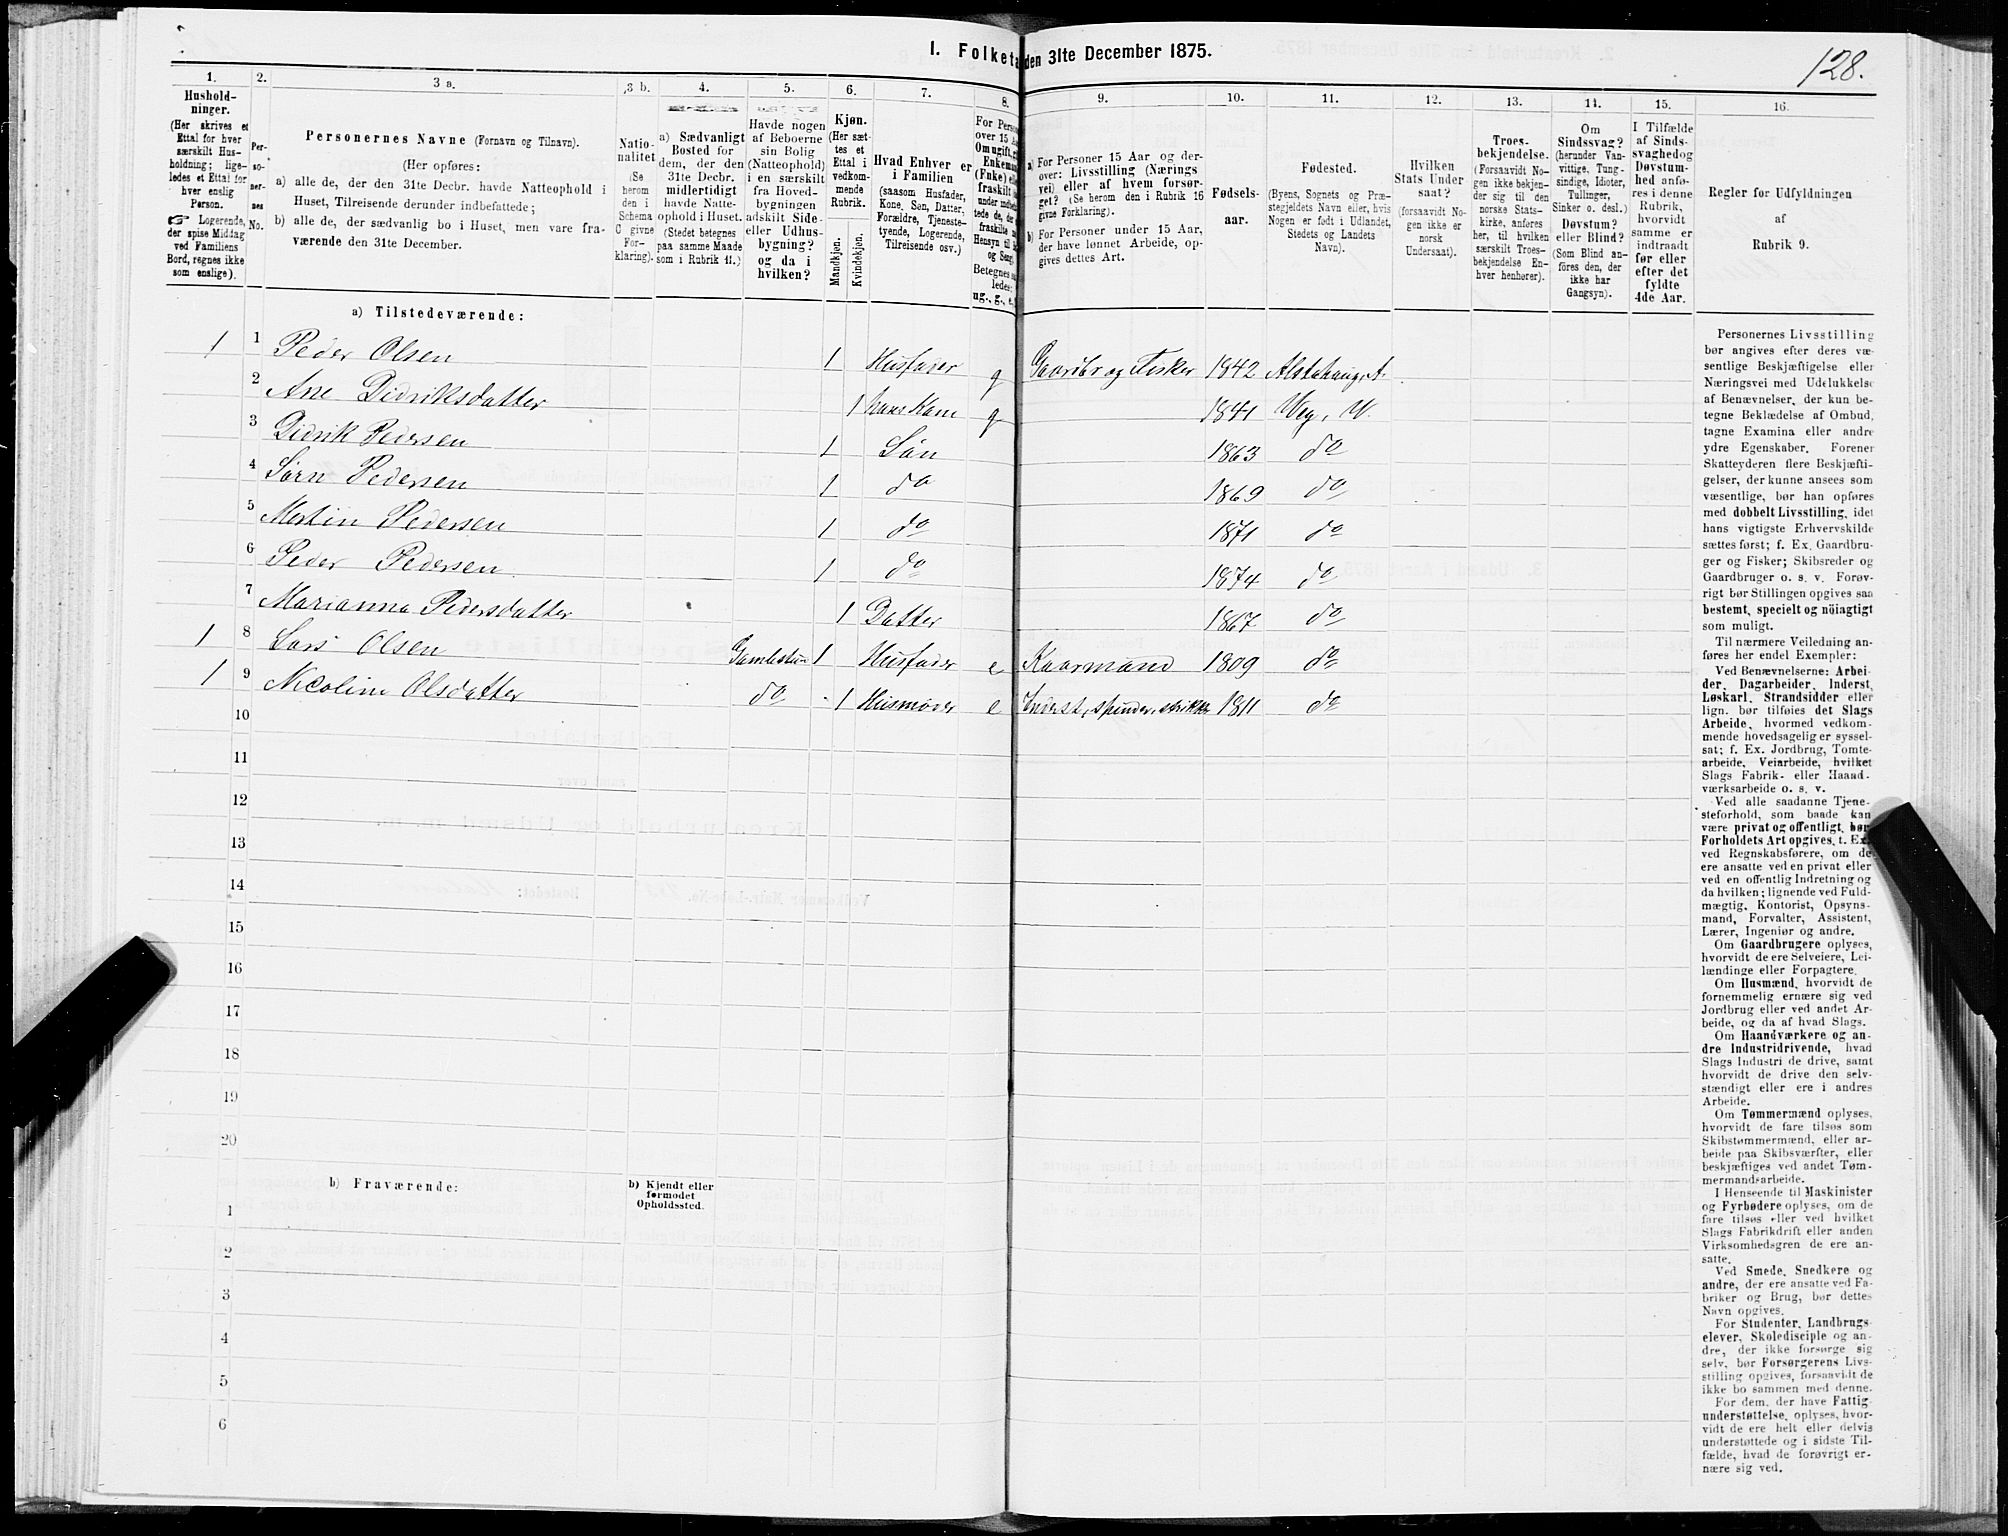 I. Folketa den 31te December 1875.
128.
1.
Hushold-
ninger.
(Her skrives et
Ettal for hver
særskilt Hus-
holdning; lige-
ledes et Ettal for
hver enslig
Person.
☞ Logerende,
der spise Middag
ved Familiens
Bord, regnes ikke
som enslige).
2.
Per-
so-
ner-
nes
No.
3 a.
Personernes Navne (Fornavn og Tilnavn).
(Her opføres:
a) alle de, der den 31te Decbr. havde Natteophold i
Huset, Tilreisende derunder indbefattede;
b) alle de, der sædvanlig bo i Huset, men vare fra-
værende den 31te December.
3 b.
Natio-
nalitet
(Se
herom
den i
Schema
C givne
For-
klaring).
4.
a) Sædvanligt
Bosted for
dem, der den
31te Decbr.
midlertidigt
havde Natte-
ophold i Huset.
(Stedet betegnes
paa samme Maade
som i Rubrik 11.)
5.
Havde nogen
af Beboerne
sin Bolig
(Natteophold)
i en særskilt
fra Hoved-
bygningen
adskilt Side-
eller Udhus-
bygning?
og da i
hvilken?
6.
Kjøn.
(Her sæt-
tes et
Ettal i
vedkom-
mende
Rubrik.
Mandkjøn.
Kvindekjøn.
7.
Hvad Enhver er
i Familien
(saasom Husfader,
Kone, Søn, Datter,
Forældre, Tjeneste-
tyende, Logerende,
Tilreisende osv.)
8.
For Person
over 15 Aar
Omugift, g
Enkeman
(Enke) elle
fraskilt
Betegnes sa
ledes:
ug., g., e.
9.
a) For Personer 15 Aar og der-
over: Livsstilling (Nærings
vei) eller af hvem forsør-
get? (Se herom den i Rubrik 16
givne Forklaring).
b) For Personer under 15 Aar,
der have lønnet Arbeide, op-
gives dettes Art.
10.
Fødsels-
aar.
11.
Fødested.
(Byens, Sognets og Præ-
stegjeldets Navn eller, hvis
Nogen er født i Udlandet,
Stedets og Landets
Navn).
12.
Hvilken
Stats Under
saat?
(forsaavidt No-
gen ikke er
norsk
Undersaat).
13.
Troes-
bekjendelse.
(Forsaavidt No-
gen ikke bekjen-
der sig til den
norske Stats-
kirke, anføres
her, til hvilken
særskilt Troes-
bekjendelse En-
hver henhører).
14.
Om
Sindssvag?
(herunder Van-
vittige, Tung-
sindige, Idioter,
Tullinger,
Sinker o. desl.)
Døvstum?
eller Blind?
(Som Blind an-
føres den, der
ikke har
Gangsyn).
15.
I Tilfælde
af Sinds-
svaghed og
Døvstum-
hed anfø-
res i denne
Rubrik,
hvorvidt
samme er
indtraadt
før eller
efter det
fyldte
4de Aar.
16.
Regler for Udfyldningen
af
Rubrik 9.
a) Tilstedeværende:
1 1 Peder Olsen 1 Husfader g Gaardbr og Fisker 1842 Alstahaug, A.
2 Ane Didriksdatter 1 hans Kone g 1841 Veg, V.
3 Didrik Pedersen 1 Søn 1863 do
4 Sørn Pedersen 1 do 1869 do
5 Martin Pedersen 1 do 1871 do
6 Peder Pedersen 1 do 1874 do
7 Marianna Pedersdatter 1 Datter 1867 do
1 8 Lars Olsen 1 Husfader e Kaarmand 1809 do
1 9 Nicoline Olsdatter do 1 Husmoder e Inderst, spinder, strikker 1811 do
10
11
12
13
14
15
16
17
18
19
20
b) Fraværende:
b) Kjendt eller
formodet
Opholdssted.
1
2
3
4
5
6
Personernes Livsstilling
bør angives efter deres væ-
sentlige Beskjæftigelse eller
Næringsvei med Udelukkelse
af Benævnelser, der kun be-
tegne Beklædelse af Ombud,
tagne Examina eller andre
ydre Egenskaber. Forener
Skatteyderen flere Beskjæfti-
gelser, der kunne ansees som
væsentlige, bør han opføres
med dobbelt Livsstilling, idet
hans vigtigste Erhvervskilde
sættes først; f. Ex. Gaardbru-
ger og Fisker; Skibsreder og
Gaardbruger o. s. v. Forøv-
rigt bør Stillingen opgives saa
bestemt, specielt og nöiagtigt
som muligt.
Til nærmere Veiledning an-
føres her endel Exempler:
Ved Benævnelserne: Arbei-
der, Dagarbeider, Inderst,
Løskarl, Strandsidder eller
lign. bør tilføies det Slags
Arbeide, hvormed vedkom-
mende hovedsagelig er syssel-
sat; f. Ex. Jordbrug, Tomte-
arbeide, Veiarbeide, hvilket
Slags Fabrik- eller Haand-
værksarbeide o. s. v.
Ved alle saadanne Tjene-
steforhold, som baade kan
være privat og offentligt, bør
Forholdets Art opgives, t. Ex.
ved Regnskabsførere, om de
ere ansatte ved en privat eller
ved en offentlig Indretning og
da hvilken; lignende ved Fuld-
mægtig, Kontorist, Opsyns-
mand, Forvalter, Assistent,
Lærer, Ingeniør og andre.
Om Gaardbrugere oplyses,
hvorvidt de ere Selveiere, Lei-
lændinge eller Forpagtere.
Om Husmænd, hvorvidt de
fornemmelig ernære sig ved
Jordbrug eller ved andet Ar-
beide, og da af hvad Slags.
Om Haandværkere og an-
dre Industridrivende, hvad
Slags Industri de drive, samt
hvorvidt de drive den selv-
stændigt eller ere i andres
Arbeide.
Om Tømmermænd oplyses,
hvorvidt de fare tilsøs som
Skibstømmermænd, eller ar-
beide paa Skibsværfter, eller
beskjæftiges ved andet Tøm-
mermandsarbeide.
I Henseende til Maskinister
og Fyrbødere oplyses, om de
fare tilsøs eller ved hvilket
Slags Fabrikdrift eller anden
Virksomhedsgren de ere an-
satte.
Ved Smede, Snedkere og
andre, der ere ansatte ved Fa-
briker og Brug, bør dettes
Navn opgives.
For Studenter, Landbrugs-
elever, Skoledisciple og an-
dre, der ikke forsørge sig
selv, bør Forsørgerens Livs-
stilling opgives, forsaavidt de
ikke bo sammen med denne.
For dem, der have Fattig
understøttelse, oplyses, hvor-
vidt de ere helt eller delvis
understøttede og i sidste Til-
fælde, hvad de forøvrigt er-
nære sig ved.